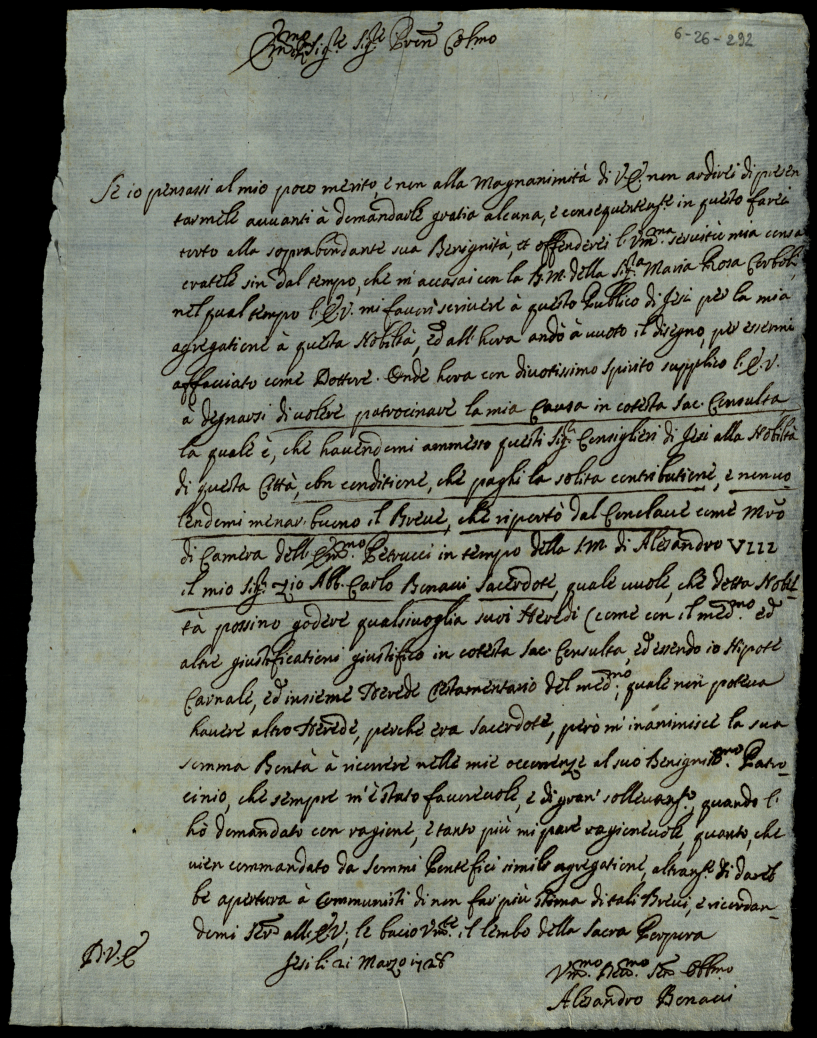 6-26-292
Em̃mo Sig.re Sig.re Pron̄ Colmo
Se io pensassi al mio poco merito, e non alla Magnanimità di V.E. non ardirei di presen
tarmele avvanti à domandarle gratia alcuna, e conseguentem.te in questo farei
torto alla soprabondante sua Benignità, et offenderei l'Um̃ma servitù mia consa
cratele sin dal tempo, che m'accasai con la B.M. della Sig.ra Maria Rosa
nel qual tempo l'E.V. mi favorì scrivere à questo Publico di Jesi per la mia
agregatione à questa Nobiltà, ed all'hora andò à vuoto il disegno, per essermi
affacciato come Dottore. Onde hora con divotissimo spirito supplico l'E.V.
à degnarsi di volere patrocinare la mia Causa in cotesta Sac. Consulta,
la quale è, che havendomi ammesso questi Sig.ri Consiglieri di Jesi alla Nobiltà
di questa Città, con conditione, che paghi la solita contributione, e non vo
lendomi menar buono il Breve, che riportò dal Conclave come Mrõ
di Camera dell'Em̃mo Petrucci in tempo della S.M. di Alesandro VIII
il mio Sig.r Zio Abb. Carlo Bonacci Sacerdote, quale vuole, che detta Nobil-
tà possino godere qualsivoglia suoi Heredi (come con il med.mo ed
altre giustificationi giustifico in cotesta Sac. Consulta, ed essendo io Nipote
Carnale, ed insieme Herede Testamentario del med.mo, quale non poteva
havere altro Herede, perche era Sacerdote, però m'inanimisce la sua
somma Bontà à ricorrere nelle mie occorrenze al suo Benignis.mo Patro-
cinio, che sempre m'è stato favorevole, e di gran' sollevam.to, quando l'
hò domandato con ragione, e tanto più mi pare ragionevole, quanto, che
vien commandato da Sommi Pontefici simile agregatione, altram.te si dareb
be apertura à Communisti di non far più stima di tali Brevi, e ricordan-
domi Ser.e all'E.V., le bacio Um.te il lembo della Sacra Porpora
D.V.E.
Jesi li 21 Marzo 1726
Um̃mo Devmo Ser.e Obblmo
Alesandro Bonacci